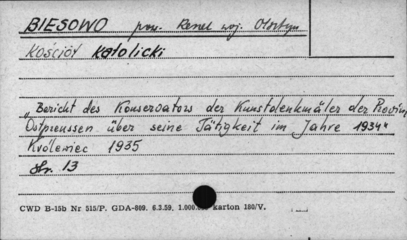 BIESOWO pow. Reszel woj. Olsztyn
Kościół katolicki
„Bericht des Konservators der Kunstdenkmäler der Provinz
Ostpreussen über seine Tätigkeit im Jahre 1934"
Królewiec 1935
str. 13
CWD B-15b Nr 515/P. GDA-809. 6.3.59. karton 180/V.